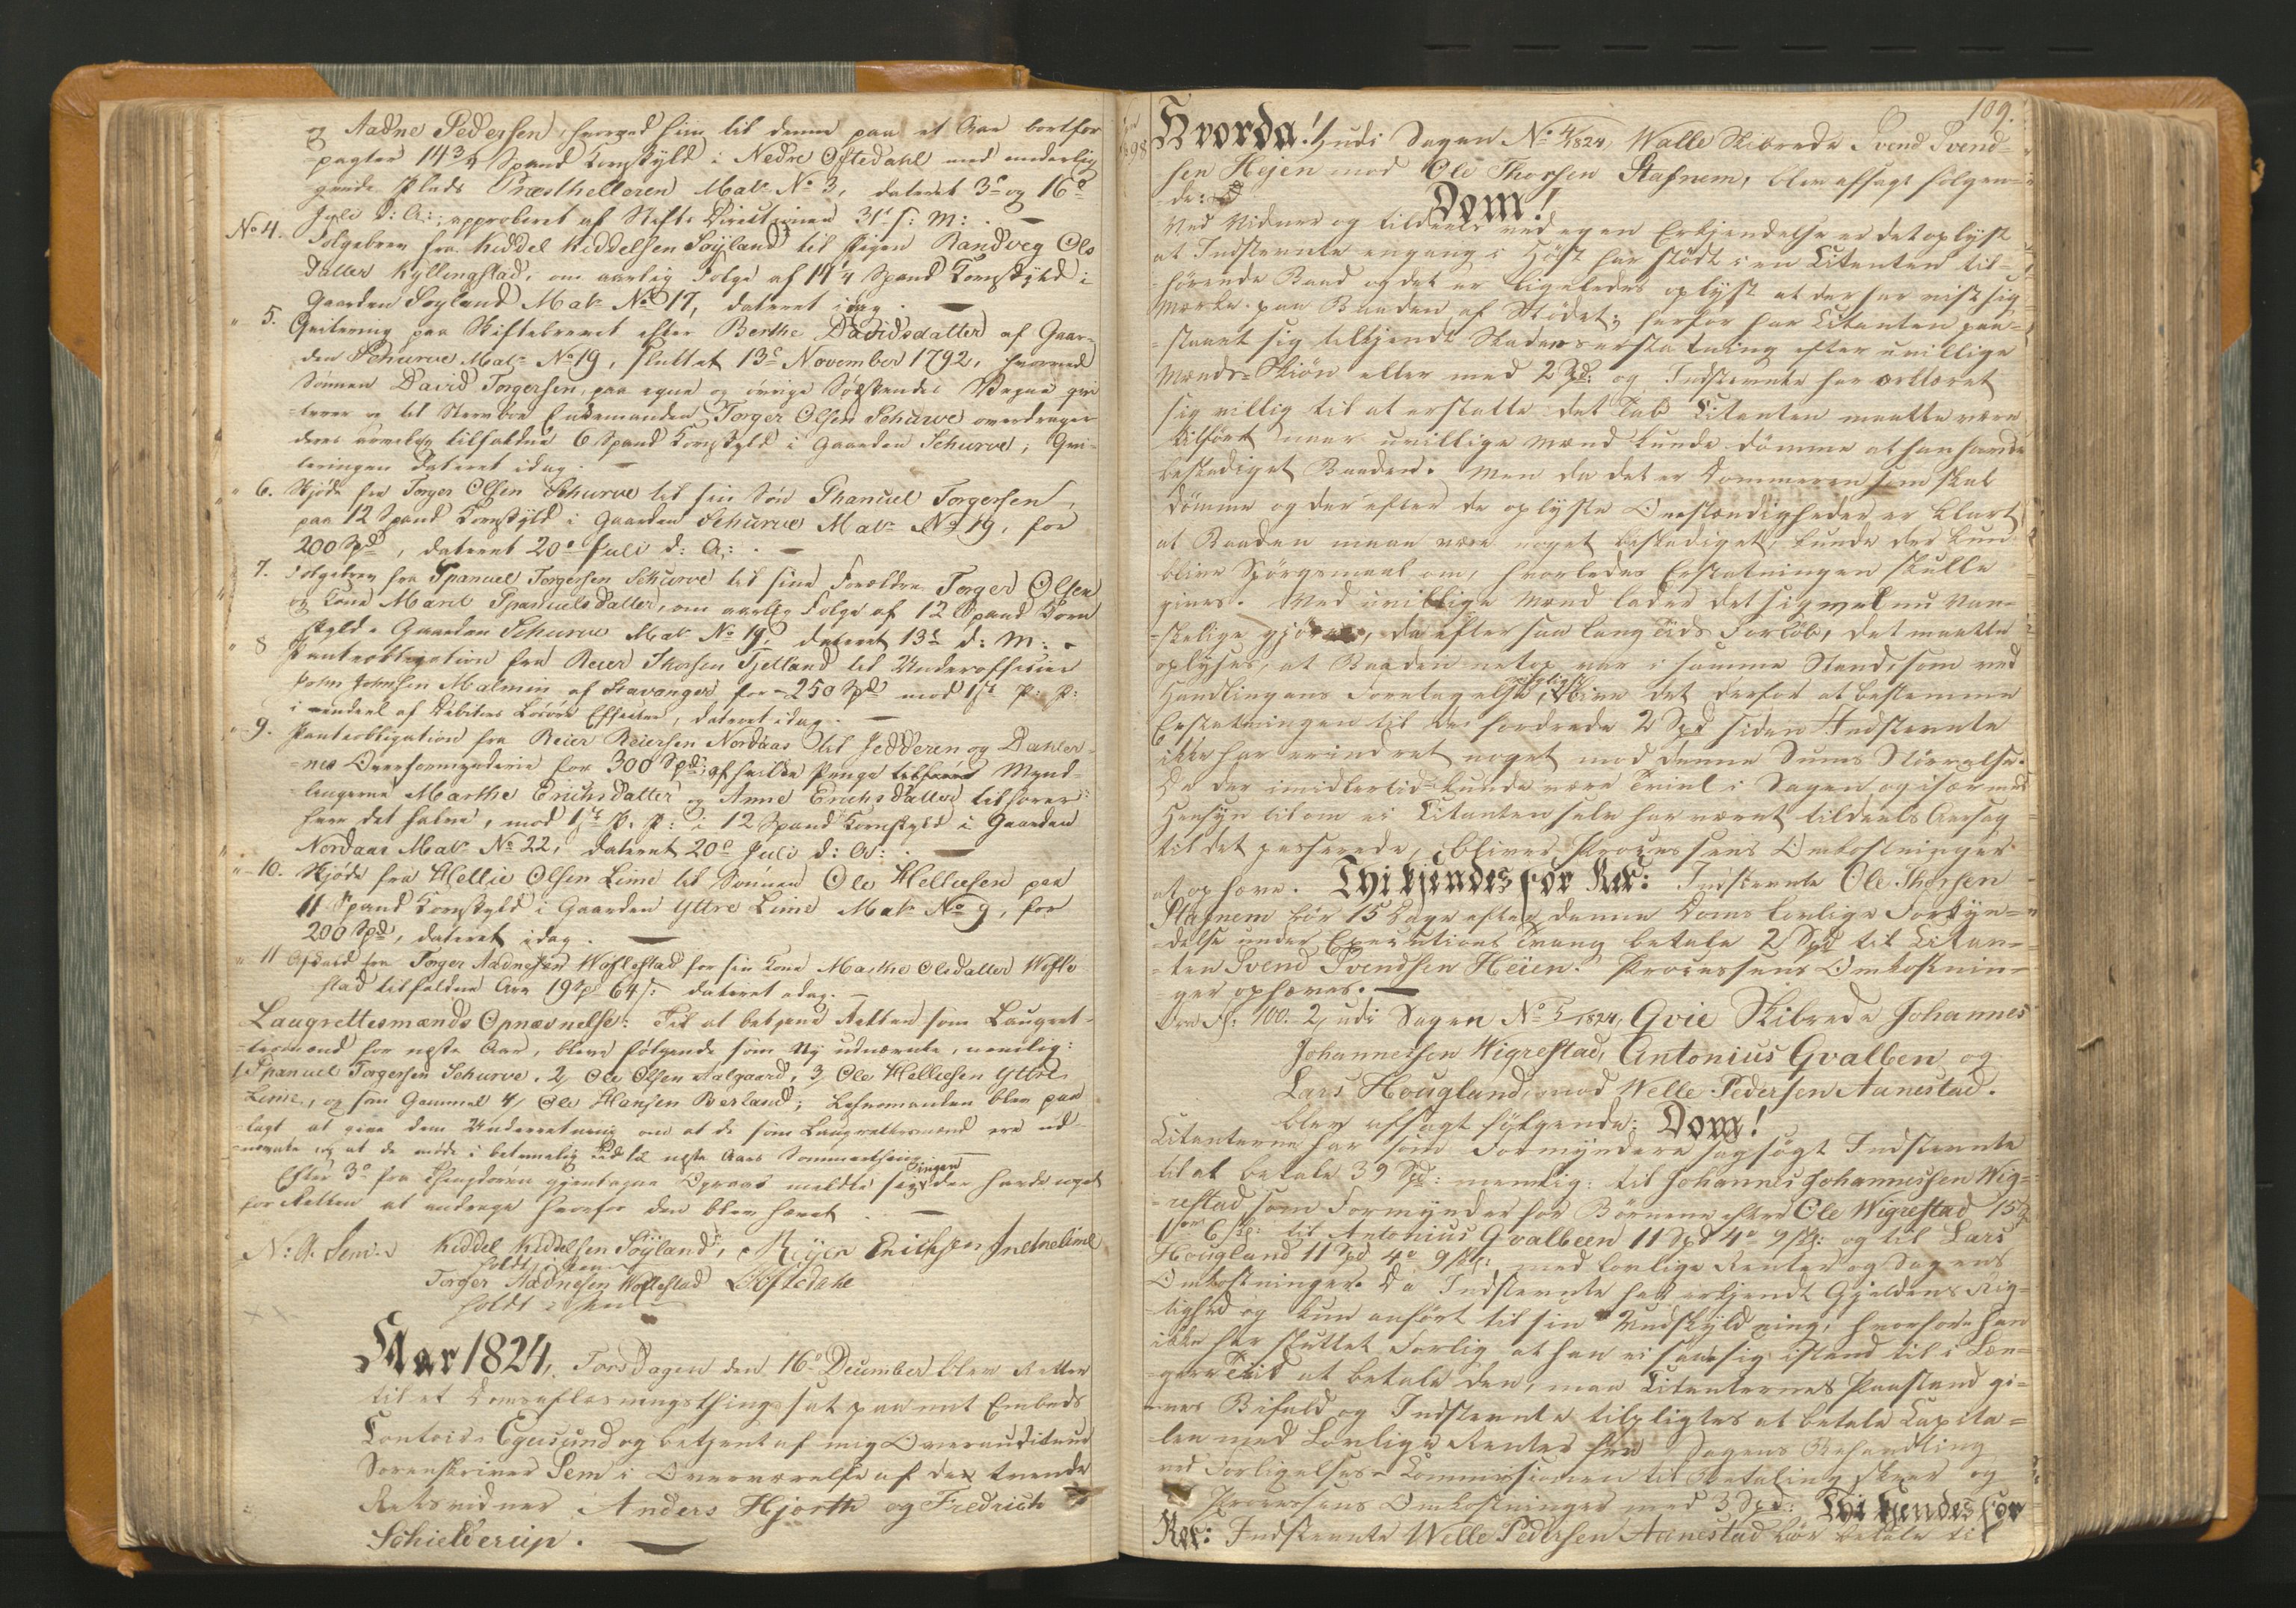 og Aadne Pedersen, hvorved hun til denne paa et Aar bortfor
=pagter 14 3/4 Spand Kornskyld i Nedre Oftedahl med underlig
gende Plads Præsthelleren Mat: No 3, dateret 3e og 16e
Juli d: A:, approberet af Stifts Directionen 31e s: M: . —
No 4. Folgebrev fra Kiddel Kiddelsen Søyland til Pigen Randveg Ols
datter Kyllingstad, om aarlig Folge af 14 1/4 Spand Kornskyld i
Gaarden Søyland Mat: No 17, dateret idag . —
" 5. Qvitering paa Skiftebrevet efter Berthe Davidsdatter af Gaar-
den Schurve Mat: No 19, sluttet 13e November 1792, hvorved
Sønnen David Torgersen, paa egne og øvrige Søskendes Vegne qvi
terer og til Enkemanden Torger Olsen Schurve overdrager
deres arvelig tilfaldne 6 Spand Kornskyld i Gaarden Schurve; Qvi-
teringen dateret idag. —
" 6. Skjøde fra Torger Olsen Schurve til sin Søn Phanuel Torgersen,
paa 12 Spand Kornskyld i Gaarden Schurve Mat: No 19, for
200 Spd, dateret 20e Juli d: A: . —
7. Folgebrev fra Spanuel Torgersen Schurve til sine Forældre Torger Olsen
og Kone Maril Spanuelsdatter, om aarlig Folge af 12 Spand Korn
skyld i Gaarden Schurve Mat: No 19, dateret 13e d: M: -
" 8 Panteobligation fra Reier Thorsen Tjelland til Underofficier
John Johnsen Malmin af Stavanger for 250 Spd mod 1ste P: P:
i endeel af Debitors Løsøre Effecter, dateret idag. —
" 9. Panteobligation fra Reier Reiersen Nordaas til Jedderen og Dahler-
=nes Overformynderie for 300 Spd, af hvilke Penge Mynd-
lingerne Marthe Erichsdatter og Anne Erichsdatter tilhører
hver det halve, mod 1ste P. P: i 12 Spand Kornskyld i Gaarden
Nordaas Mat: No 22, dateret 20e Juli d: A: . —
" 10. Skjøde fra Hellie Olsen Lime til Sønnen Ole Helliesen paa
11 Spand Kornskyld i Gaarden Yttre Lime Mat: No 9, for
200 Spd, dateret idag . —
" 11 Afkald fra Torger Aadnesen Woflestad for sin Kone Marthe Olsdatter Wofle
stad tilfaldne Arv 19 Spd 64 s: dateret idag. —
Laugrettesmænds Opnævnelse: Til at betjene Retten som Laugret-
tesmænd for neste Aar, bleve følgende som Ny udnævnte, nemlig:
1, Spanuel Torgersen Schurve. 2, Ole Olsen Aalgaard, 3, Ole Helliesen Yttre
Lime, og som Gammel 4, Ole Hansen Berland; Lehnsmanden blev paa
lagt at give dem Underretning om at de som Laugrettesmænd ere ud-
=nævnte, og at de møde i betimelig Tid til neste Aars Sommerthing. —
Efter 3e fra Thingdøren gjentagne Opraab meldte sig ingen der havde noget
for Retten at andrage hvorfor den blev hævet . —
N: A. Sem. Kiddel Kiddelsen Søyland, Reyer Erichsen Indrelime
holdt i Pen
Torger Aadnesen Woflestad LOftedahl
holdt i Pen
Aar 1824, Torsdagen den 16e December blev Retten
til et Domsaflæsningsthing sat paa mit Embeds
Contoir i Egersund og betjent af mig Overauditeur
Sorenskriver Sem i Overværelse af de tvende
Retsvidner Anders Hjorth og Fredrich
Schielderup. —
109.
Hvorda! 1, udi Sagen No 4/1824, Walle Skibrede Svend Svend-
sen Hejen mod Ole Thorsen Stafnem, blev afsagt følgen-
-de: Dom!
Ved Vidner og tildeels ved egen Erkjendelse er det oplyst
at Indstevnte engang i Høst har stødt i en Citanten til-
=hørende Baad og det er ligeledes oplyst at der har vist sig
Mærke paa Baaden af Stødet; herfor har Citanten paa-
=staaet sig tilkjendt Skadeserstatning efter uvillige
Mænds Skjøn eller med 2 Spd: og Indstevnte har erklæret
sig villig til at erstatte det Tab Citanten maatte være
tilført naar uvillige Mænd kunde dømme at han havde
beskadiget Baaden. Men da det er Dommeren som skal
dømme og der efter de oplyste Omstændigheder er klart,
at Baaden maae være noget beskadiget, kunde der kun
blive Spørgsmaal om, hvorledes Erstatningen skulle
gives. Ved uvillige Mænd lader det sig vel nu van-
=skelige gjøre, da efter saa lang Tids Forløb, det maatte
oplyses, at Baaden netop var i samme Stand, som ved
Handlingens Foretagelse, bliver det derfor at bestemme
Erstatningen til de fordrede 2 Spd siden Indstevnte
ikke har erindret noget mod denne Sums Størrelse.
Da der imidlertid kunde være Tvivl i Sagen og især med
Hensyn til om ei Citanten selv har været tildeels Aarsag
til det passerede, bliver Processens Omkostninger
at ophæve. Thi kjendes for Ret: Indstevnte Ole Thorsen
Stafnem bør 15 Dage efter denne Doms lovlige Forkyn-
=delse under Executions Tvang betale 2 Spd til Citan-
=ten Svend Svendsen Heien. Processens Omkostnin-
ger ophæves. —
100. 2, udi Sagen No 5/1824, Qvie Skibrede Johannes
Johannessen Wigrestad, Antonius Gvalben og
Lars Hougland, mod Welle Pedersen Aanestad.
blev afsagt følgende: Dom!
Citanterne har som Formyndere sagsøgt Indstevnte
til at betale 39 Spd: nemlig: til Johannes Johannessen Wig-
=restad som Formynder for Børnene efter Ole Wigrestad 15 Spd
1 ort 6 sk: til Antonius Gvalbeen 11 Spd 4o 9 sk: og til Lars
Hougland 11 Spd 4o 9 sk: med lovlige Renter og Sagens
Omkostninger. Da Indstevnte har erkjendt Gjeldens Rig-
=tighed og kun anført til sin Undskyldning, hvorfore han
ikke har sluttet Forlig at han ei saae sig istand til i Læn-
=gere Tid at betale den, maa Citanternes Paastand gi-
=ves Bifald og Indstevnte tilpligtes at betale Capita-
len med Lovlige Renter fra Sagens Behandling
ved Forligelses-Commissionen til Betaling skeer og
Processens Omkostninger med 3 Spd: Thi kjendes for
Ret: Indstevnte Welle Pedersen Aanestad bør betale til